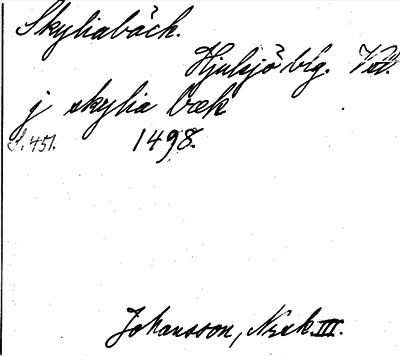 Skyliabäck.
Hjulsjö blg. Vstl.
j skylia bæk
S. 451. 1498.
Johansson, Norak. III.